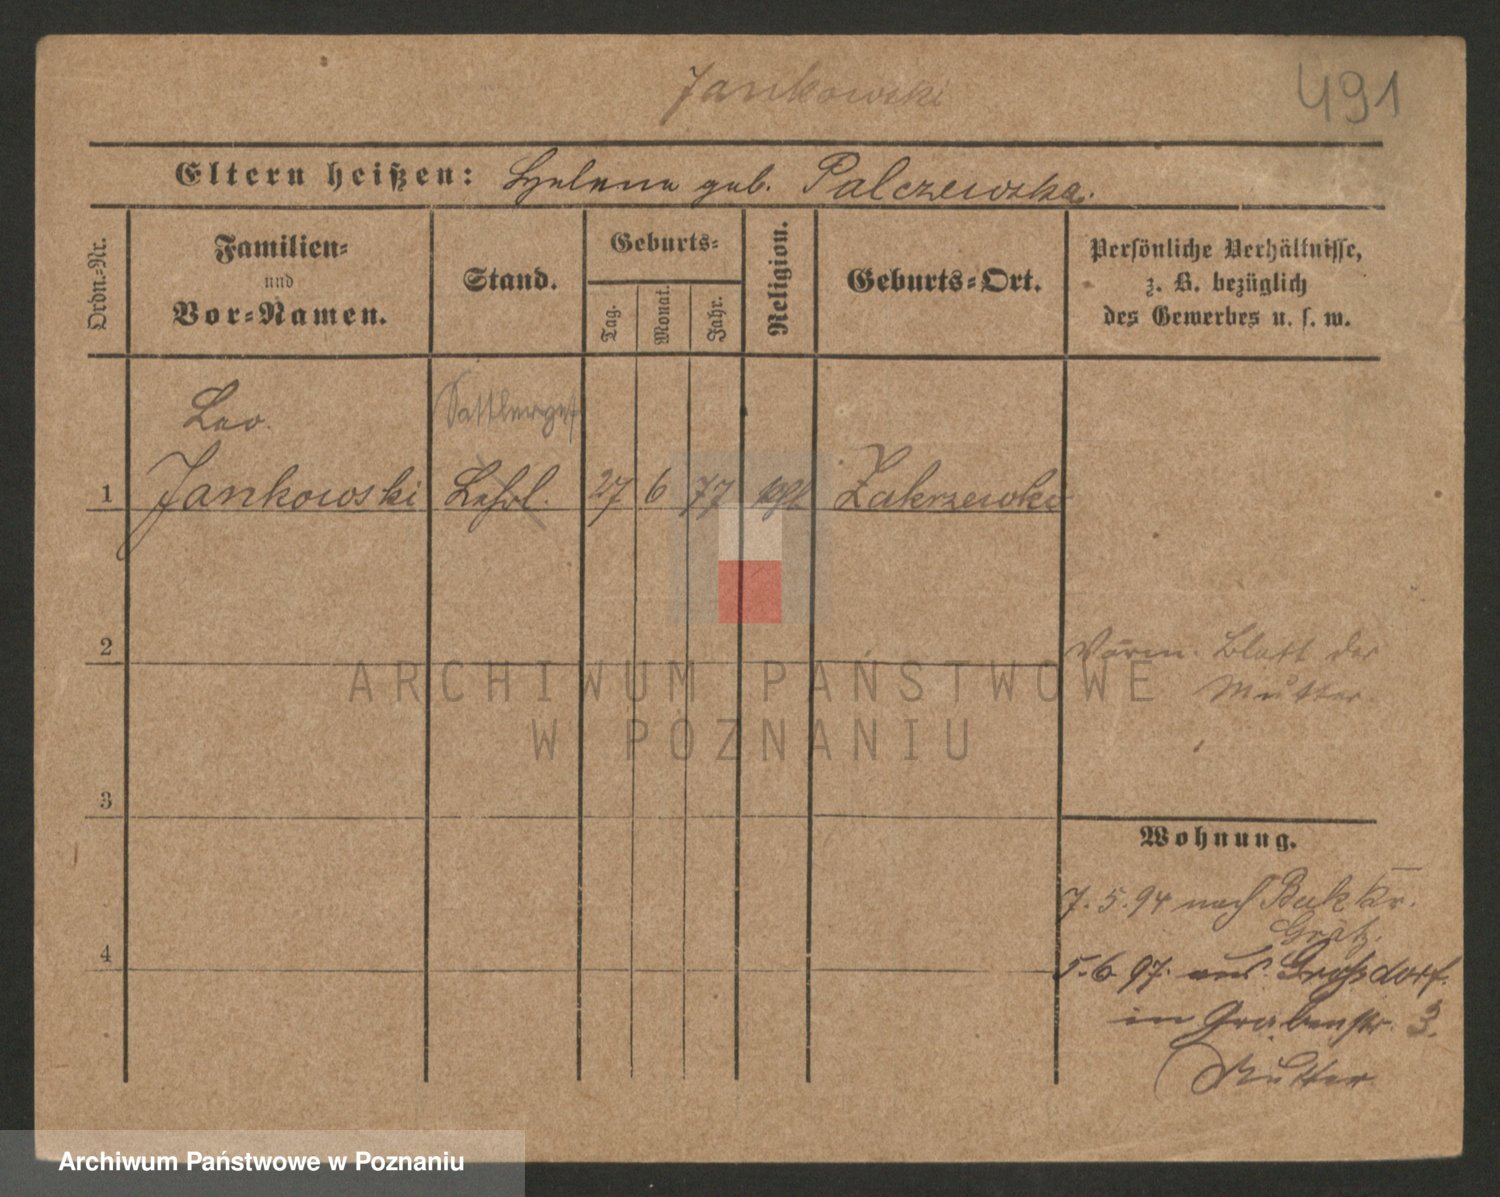 Jankowski
491
Eltern heißen: Helene geb. Palczewska.
Ordn.-Nr.
Familien-
und
Vor-Namen.
Stand.
Geburts-
Tag.
Monat.
Jahr.
Religion.
Geburts-Ort.
Persönliche Verhältnisse,
z. B. bezüglich
des Gewerbes u. s. w.
Leo
Sattlerges
1 Jankowski Lehrl. 27 6 77 kath Zakrzewko
2
Blatt der
Mutter.
3
Wohnung.
7.5.94 nach Buk Kr.
Grätz.
4
5.6.97. aus Großdorf.
in Grabenstr. 3.
Mutter
ARCHIWUM PAŃSTWOWE
W POZNANIU
Archiwum Państwowe w Poznaniu